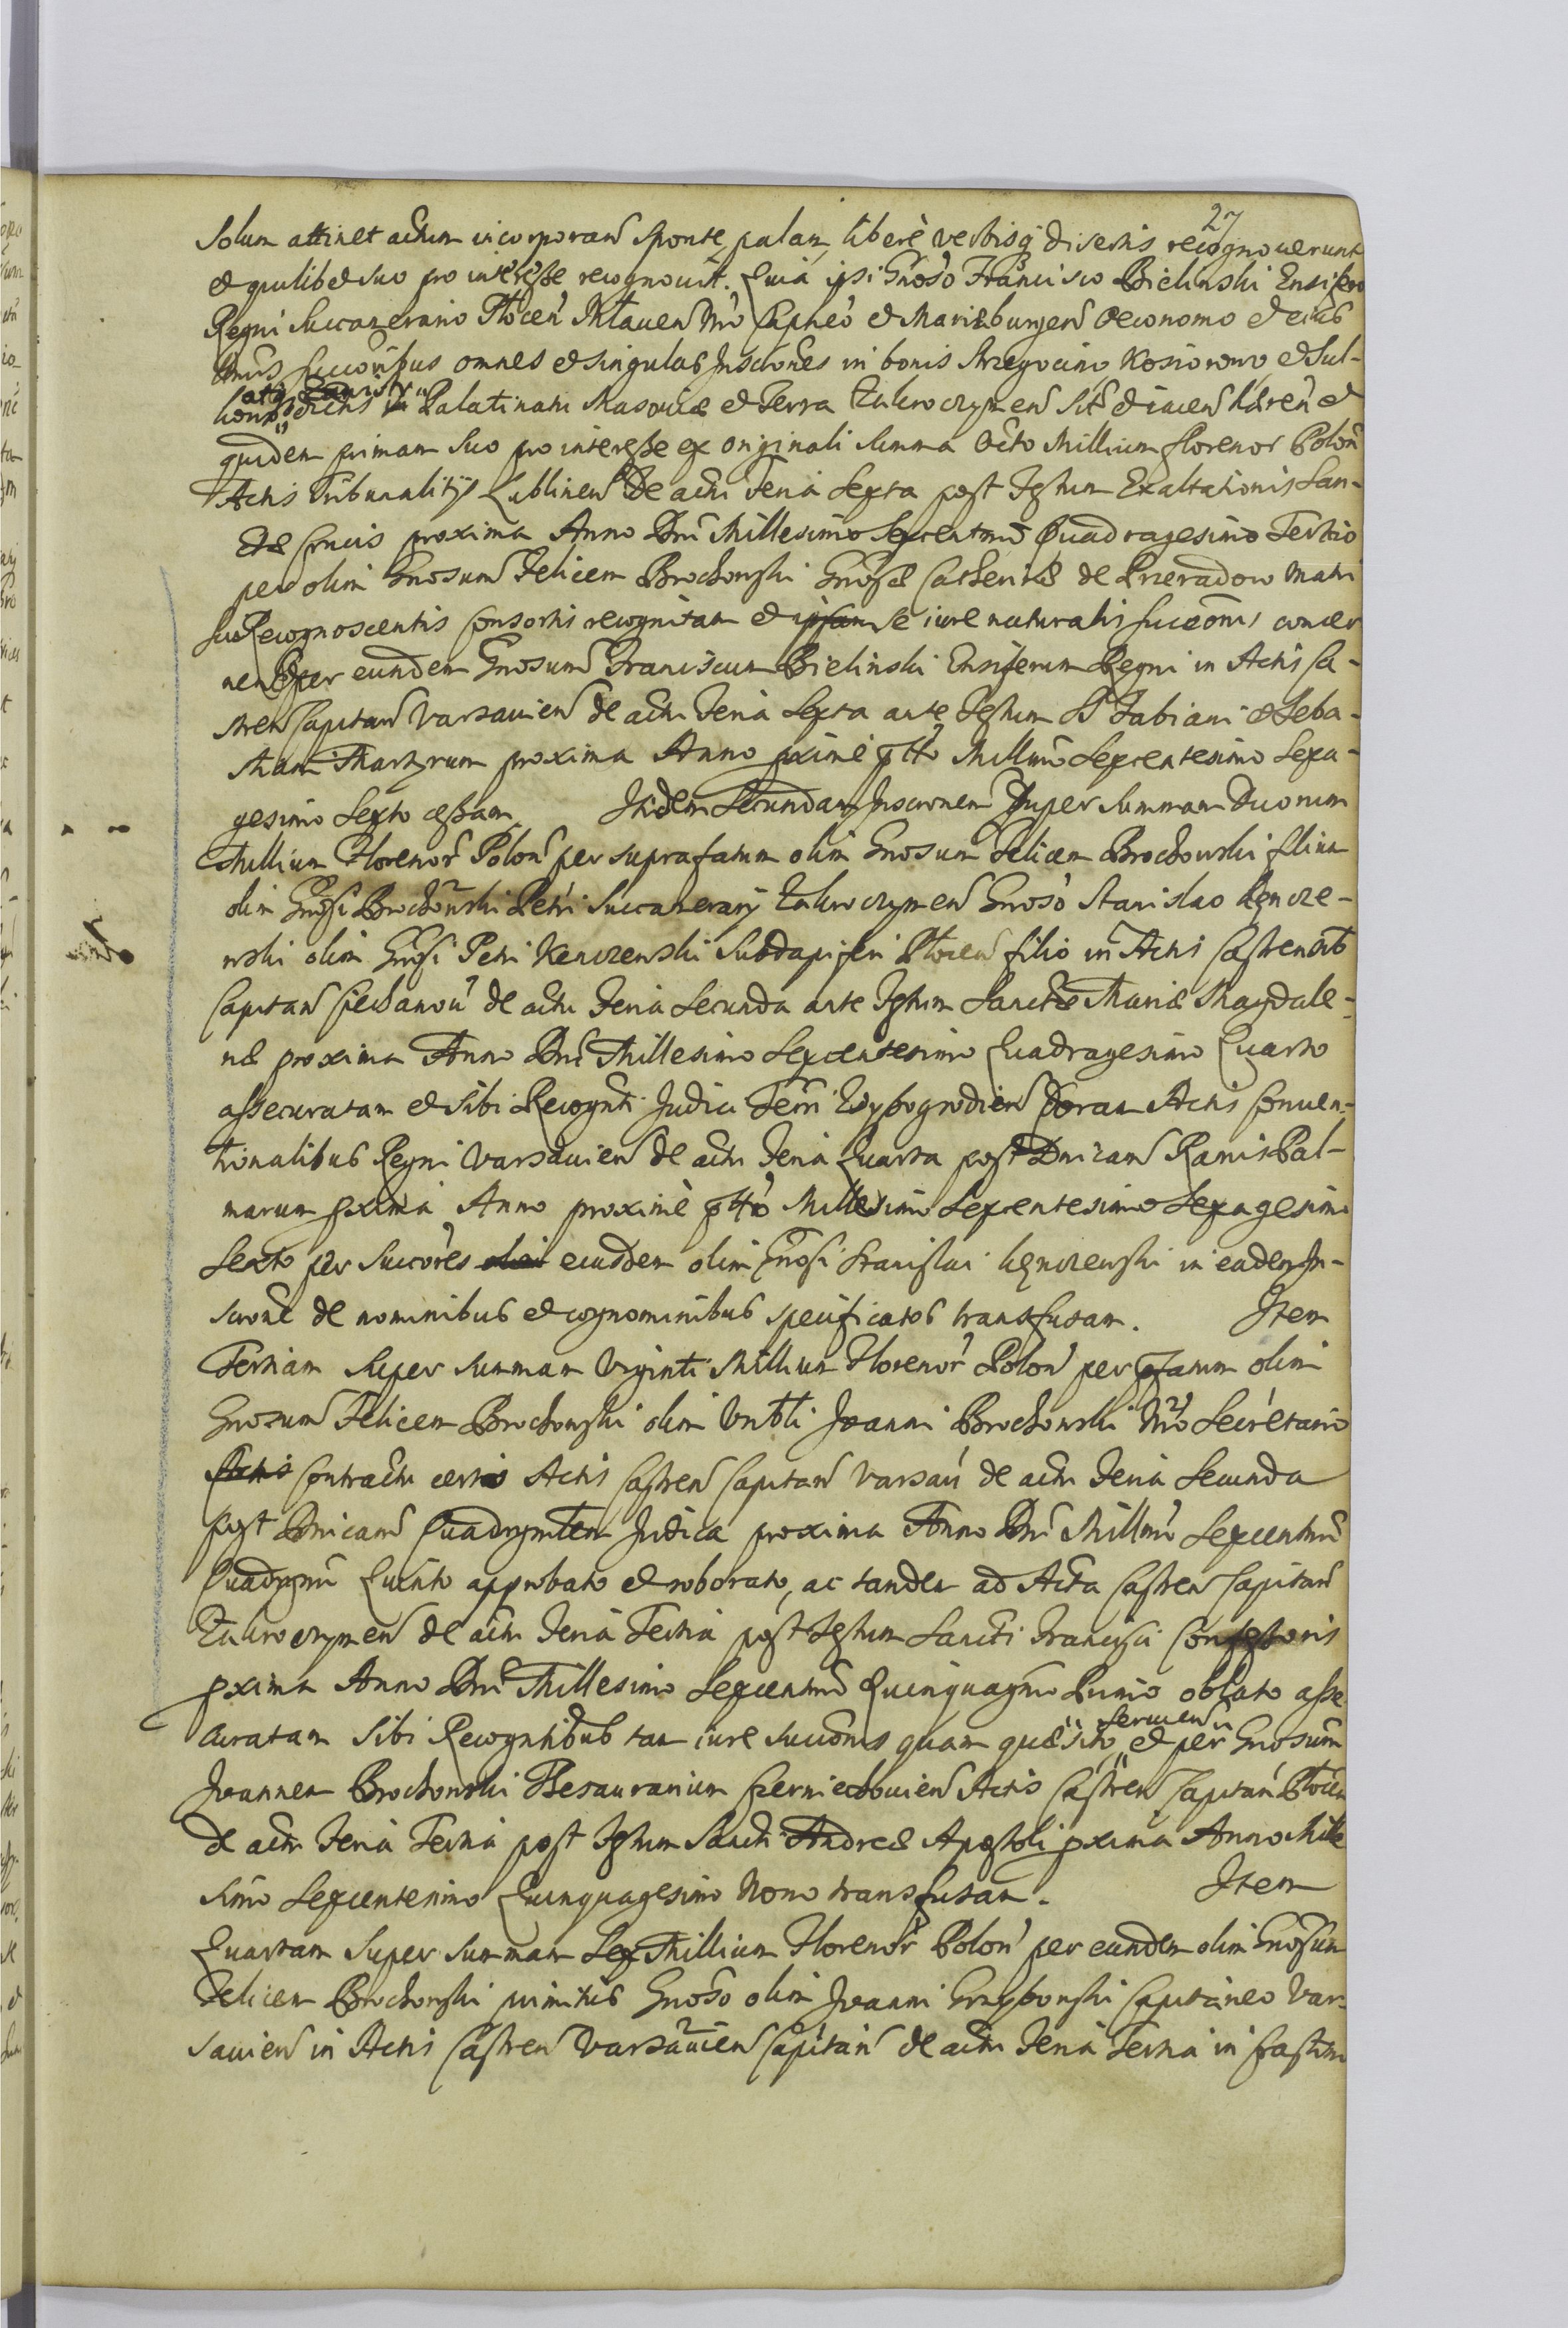 27
solum attinet actum incorporan̄ sponte, palam, liberè verbisq̨ disertis recognoverunt
et quilibet suo pro interesse recognovit. Quia ipsi Gnoso Francisco Bielinski Ensifero
Regni Succamerario Płocen̄ Mlaven̄ Nro Capneo et Marieburgen̄ Oeconomo et eius
Lttmis succoribus omnes et singulas Inscrones in bonis Strzegocino Kosiorowo et Sul-
kowo atq̨ dictis in Palatinatu Masoviæ et Terra Zakroczymen̄ sit̄ et iacen̄ hæren̄ et
quidem primam suo pro interesse ex originali summa Octo Millium florenor̄ Polon̄
Actis Tribunalitijs Lublinen̄ de actu Feria Sexta post Festum Exaltationis San-
ctæ Crucis proxima Anno Dni Millesimo Sexcentmo Quadragesimo Tertio
per olim Gnosum Felicem Brochowski Gnosæ Catherinæ de Przeradowo Matri
suæ Recognoscentis Consortis recognitam et ipsam se iure naturalis succonis concer
nen̄ et per eundem Gnosum Franciscum Bielinski Ensiferum Regni in Actis Ca-
stren̄ Capitan̄ Varsavien̄ de actu Feria Sexta ante Festum SS Fabiani et Seba-
stiani Martyrum proxima Anno pximè ptto Millmo Sexcentesimo Sexa-
gesimo Sexto cessam. Itidem Secundam Inscronem super summam Duorum
Millium Florenor̄ Polon̄ per suprafatum olim Gnosum Felicem Brochowski filium
olim Gnosi Brochowski Petri Succamerarij Zakroczymen̄ Gnoso Stanislao Kęncze-
wski olim Gnosi Petri Kenczewski Subdapiferi Płocen̄ filio in Actis Castrensib
Capitan̄ Ciechanov̄ de actu Feria Secunda ante Festum Sanctæ Mariæ Magdale-
næ proxima Anno Dni Millesimo Sexcentesimo Quadragesimo Quarto
assecuratam et sibi Recognti Judici Terri Wyszogrodien̄ coram Actis Conven-
tionalibus Regni Varsavien̄ de actu Feria Quarta post Dnicam Ramis Pal-
marum pxima Anno proximè ptto Millesimo Sexcentesimo Sexagesimo
Sexto per Succores olim eiusdem olim Gnosi Stanislai Kęnczewski in eadem In-
scrone de nominibus et cognominibus specificatos transfusam. Item
Tertiam super summam Viginti Millium Florenor̄ Polon̄ per pfatum olim
Gnosum Felicem Brochowski olim Vrbli Joanni Brochowski Nro Secretario
Actis Contractu certo Actis Castren̄ Capitan̄ Varsav̄ de actu Feria Secunda
post Dnicam Quadrgmlem Judica proxima Anno Dni Millmo Sexcentmo
Quadrgmo Quinto approbato et roborato, ac tandem ad Acta Castren̄ Capitan̄
Zakroczymen̄ de actu Feria Tertia post Festum Sancti Francisci Confessoris
pxima Anno Dni Millesimo Sexcentmo Quinquagmo Primo oblato asse
curatam sibi Recogntibus tam iure succonis quam quæsito servien̄ et per Gnosum
Joannem Brochowski Thesaurarium Czerniechovien̄ Actis Castren̄ Capitan̄ Płocen̄
de actu Feria Tertia post Festum Sancti Andreæ Apostoli pxima Anno Mille
simo Sexcentesimo Quinquagesimo Nono transfusam. Item
Quartam super summam Sex Millium Florenor̄ Polon̄ per eundem olim Gnosum
Felicem Brochowski primitus Gnoso olim Joanni Grzybowski Capitaneo Var-
savien̄ in Actis Castren̄ Varsavien̄ Capitan̄ de actu Feria Tertia in Crastino